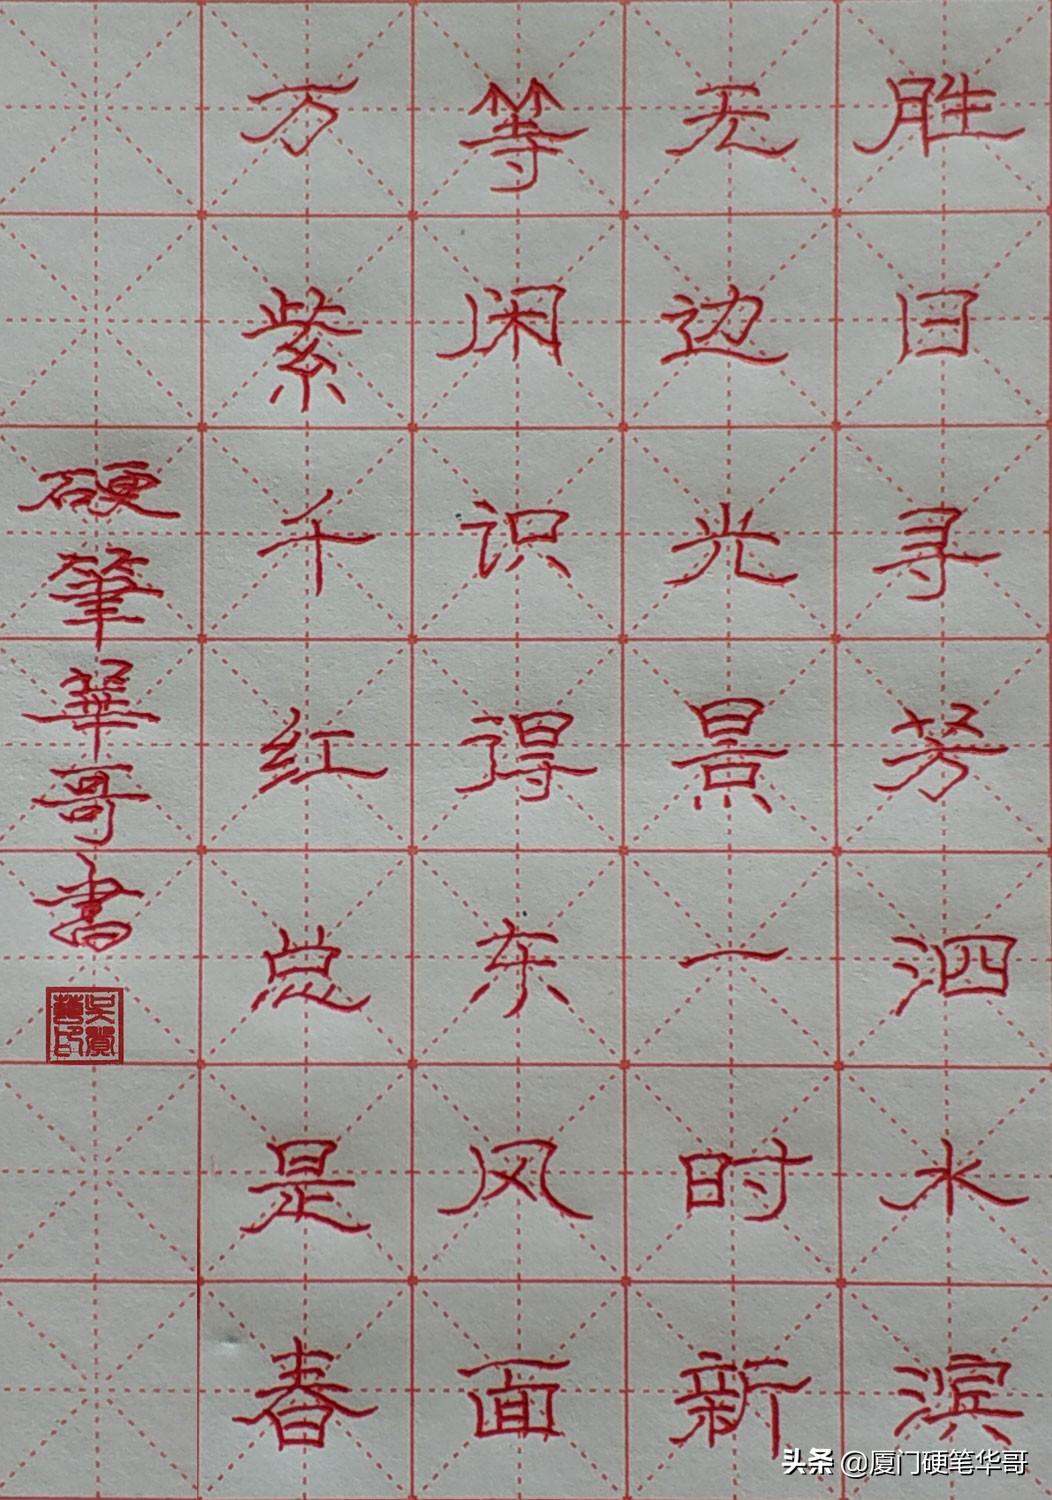 胜日寻芳泗水滨
无边光景一时新
等闲识得东风面
万紫千红总是春
硬筆華哥書
头条 @厦门硬笔华哥